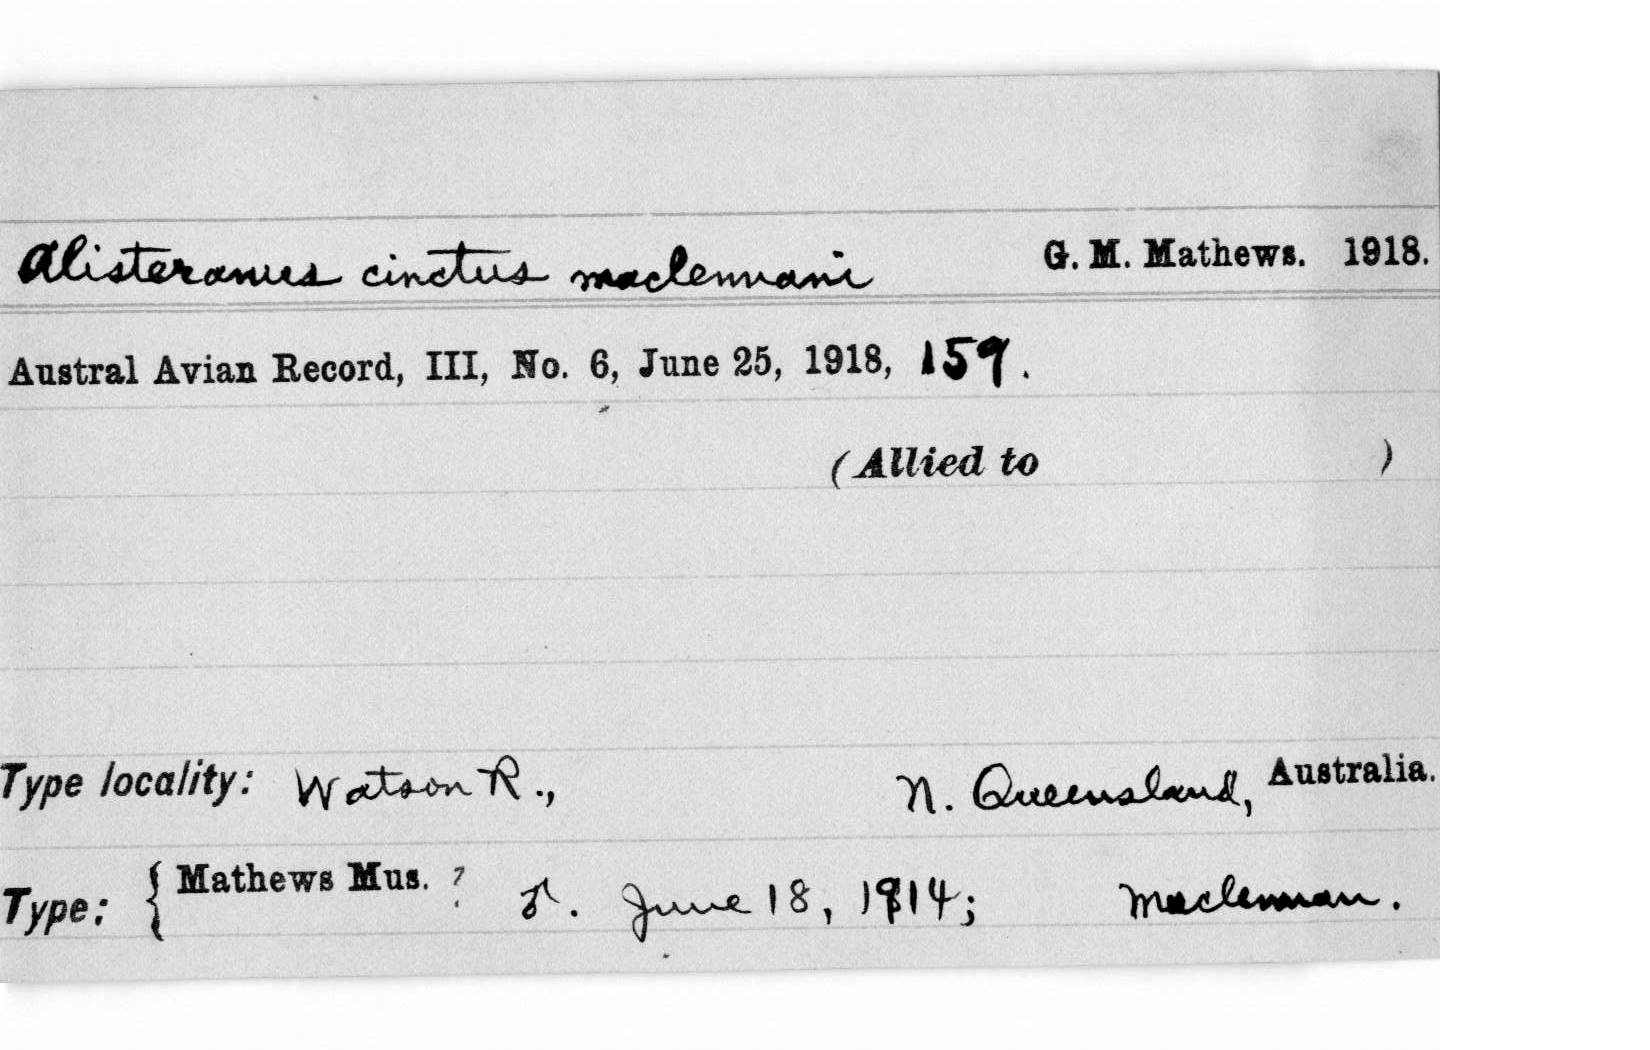 Alisteranus cinctus maclennani G. M. Mathews. 1918.
Austral Avian Record, III, No. 6, June 25, 1918, 159.
(Allied to )
Type locality: Watson R., N. Queensland, Australia.
Type: { Mathews Mus. ? ♂. June 18, 1914; Maclennan.